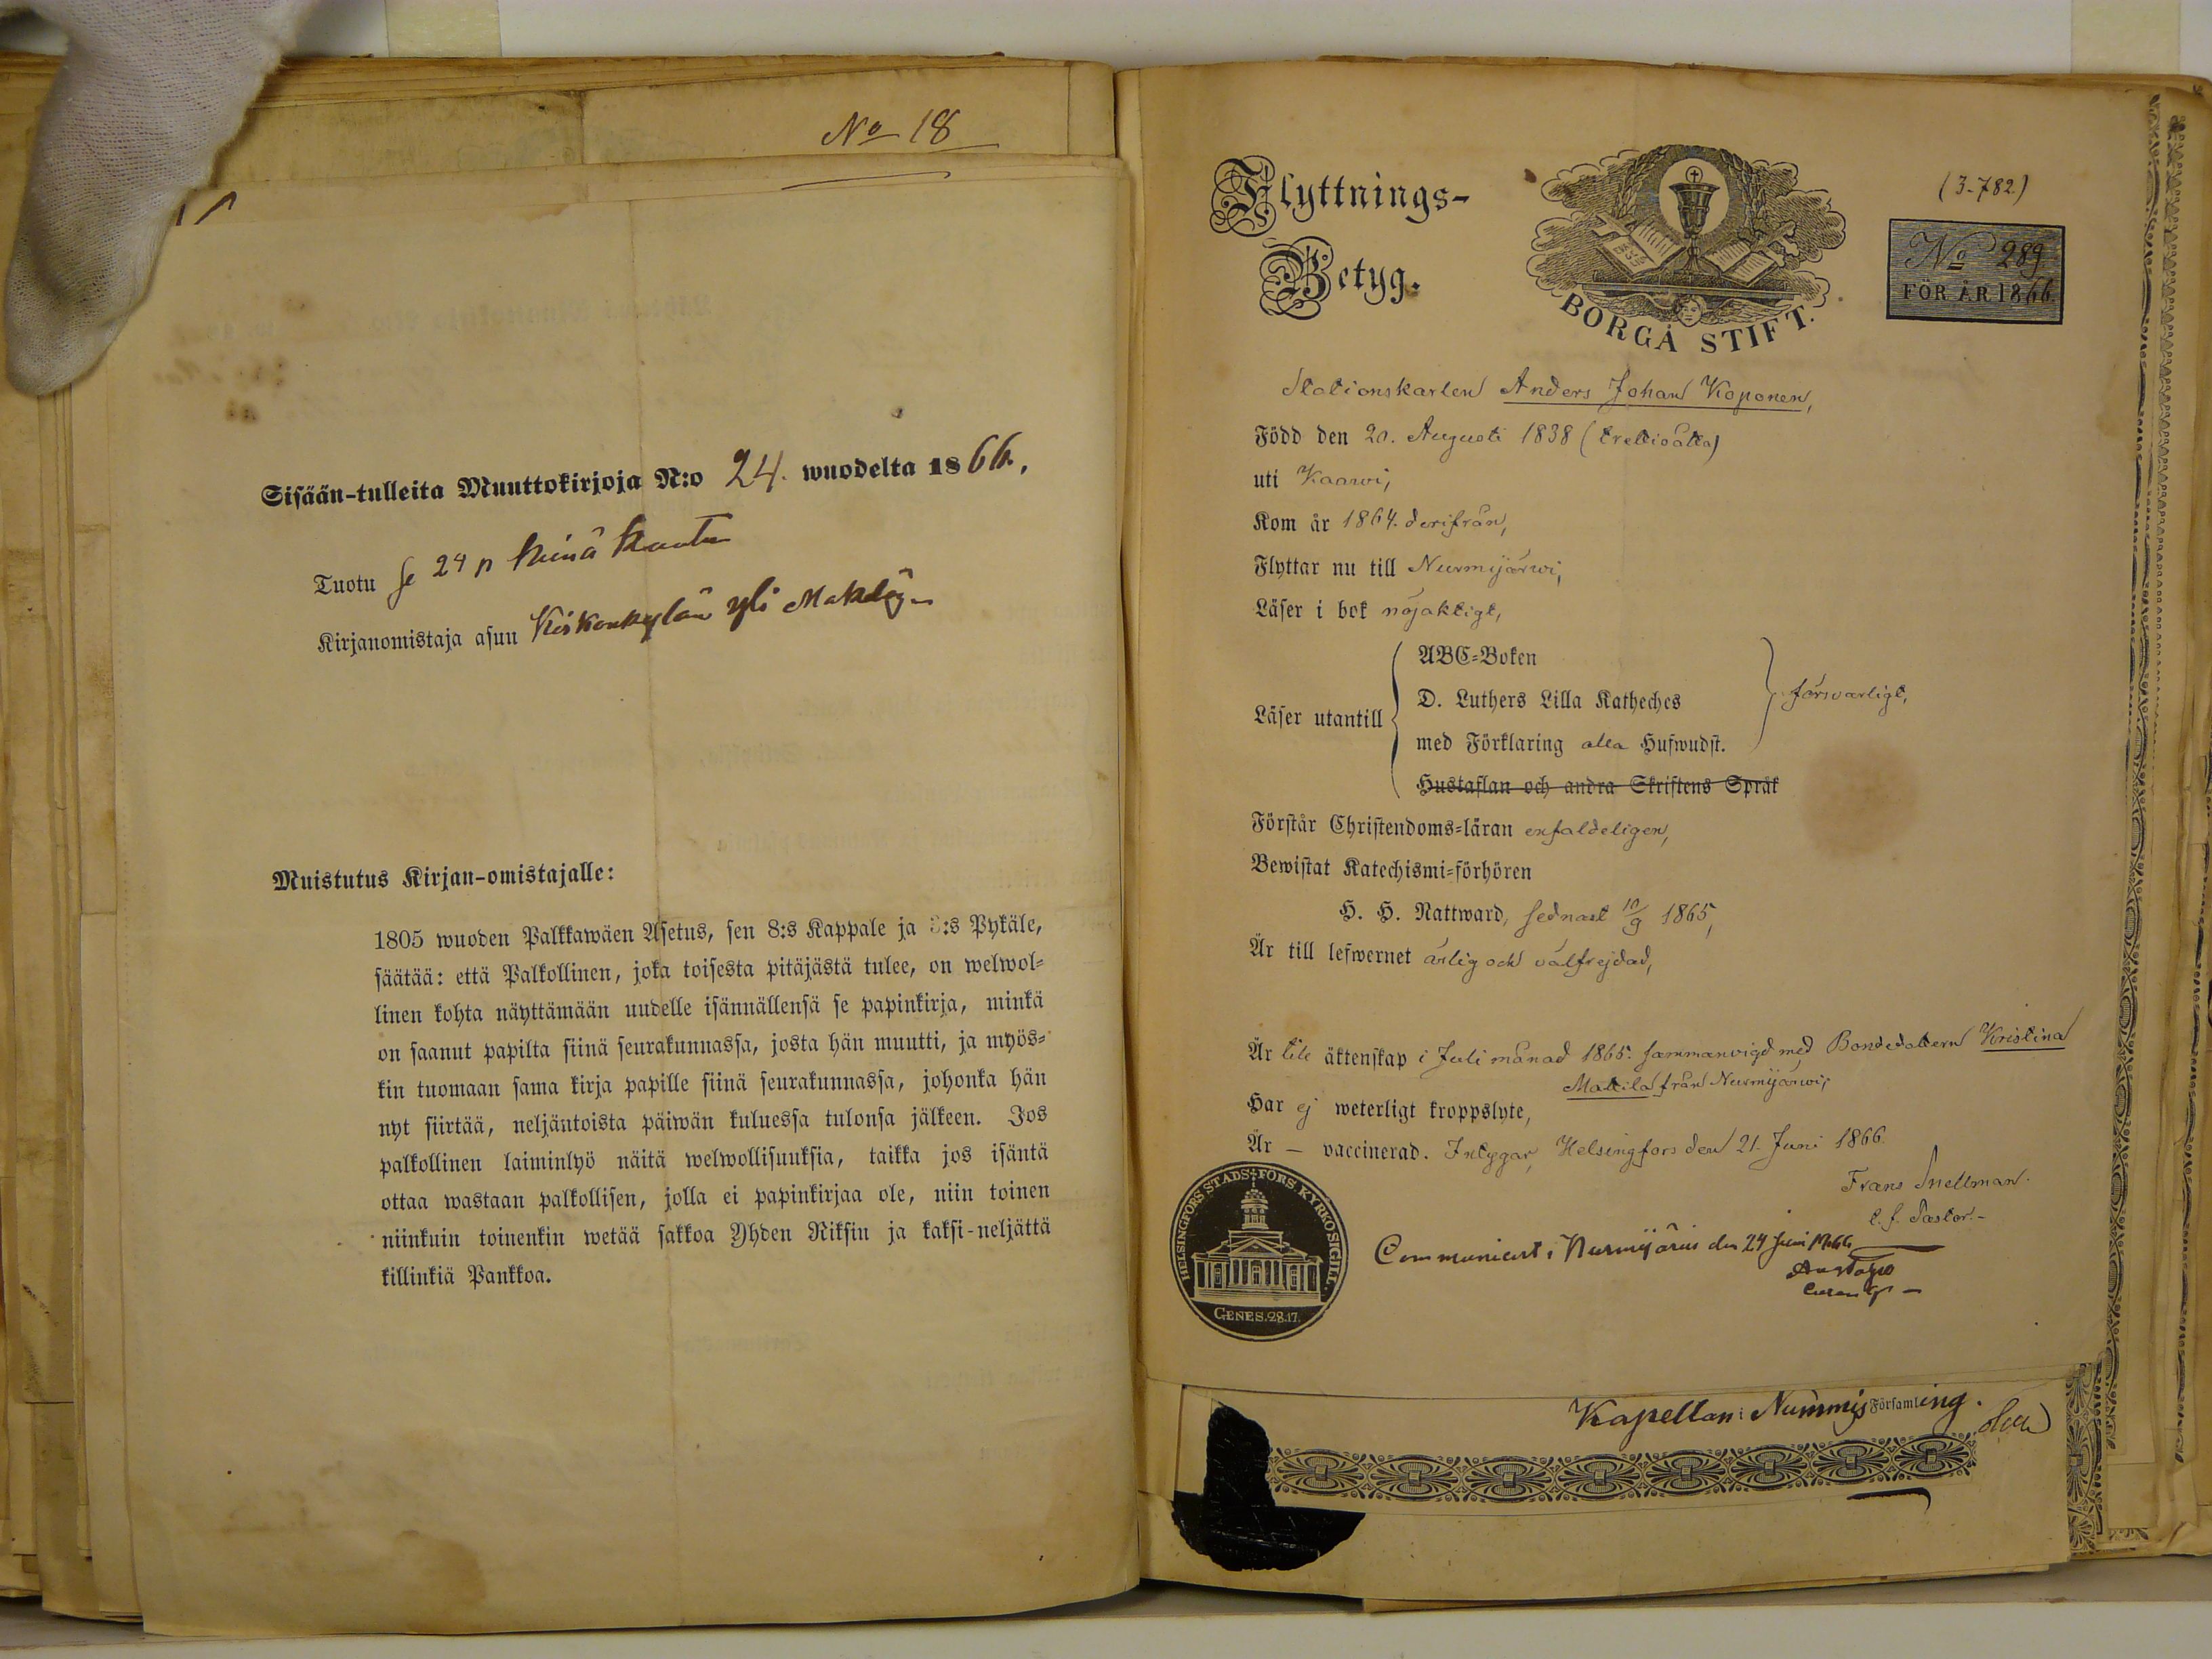 No 18
Sisään-tulleita Muuttokirjoja N:o 24. wuodelta 1866.,
Tuotu se 24 p kuuta
Kirjanomistaja asuu Kirkonkylän yli
Muistutus Kirjan-omistajalle:
1805 wuoden Palkkawäen Asetus, sen 8:s Kappale ja 3:s Pykäle,
säätää: että Palkollinen, joka toisesta pitäjästä tulee, on welwol-
linen kohta näyttämään uudelle isännällensä se papinkirja, minkä
on saanut papilta siinä seurakunnassa, josta hän muutti, ja myös-
kin tuomaan sama kirja papille siinä seurakunnassa, johonka hän
nyt siirtää, neljäntoista päiwän kuluessa tulonsa jälkeen. Jos
palkollinen laiminlyö näitä welwollisuuksia, taikka jos isäntä
ottaa wastaan palkollisen, jolla ei papinkirjaa ole, niin toinen
niinkuin toinenkin wetää sakkoa Yhden Riksin ja kaksi-neljättä
killinkiä Pankkoa.
Flyttnings-
Betyg.
BORGÅ STIFT.
(3-782)
No 289
FÖR ÅR 1866.
Stationskarlen Anders Johan Koponen,
Född den 20. Augusti 1838 (trettioåtta)
uti Kaawi,
Kom år 1864. derifrån,
Flyttar nu till Nurmijärwi,
Läser i bok nöjaktigt,
Läser utantill
ABC-Boken
D. Luthers Lilla Katheches
med Förklaring alla Hufwudst.
försvarligt,
Hustaflan och andra Skriftens Språk
Förstår Christendoms-läran enfaldeligen,
Bewistat Katechismi-förhören
H. H. Nattward, sednast 10/9 1865,
Är till lefwernet ärlig och välfrejdad,
Är till äktenskap i Juli månad 1865. sammanvigd med Bondedottern Kristina
Mattila från Nurmijärwi,
Har ej weterligt kroppslyte,
Är — vaccinerad. Intygar, Helsingfors den 21. Juni 1866.
Frans Snellman.
t. f. Pastor.-
HELSINGFORS STADS FÖRS KYRKOSIGILL
GENES. 28.17.
Communicert i Nurmijärvi den 24 Juni 1866
Kapellan i Nummis Församling.